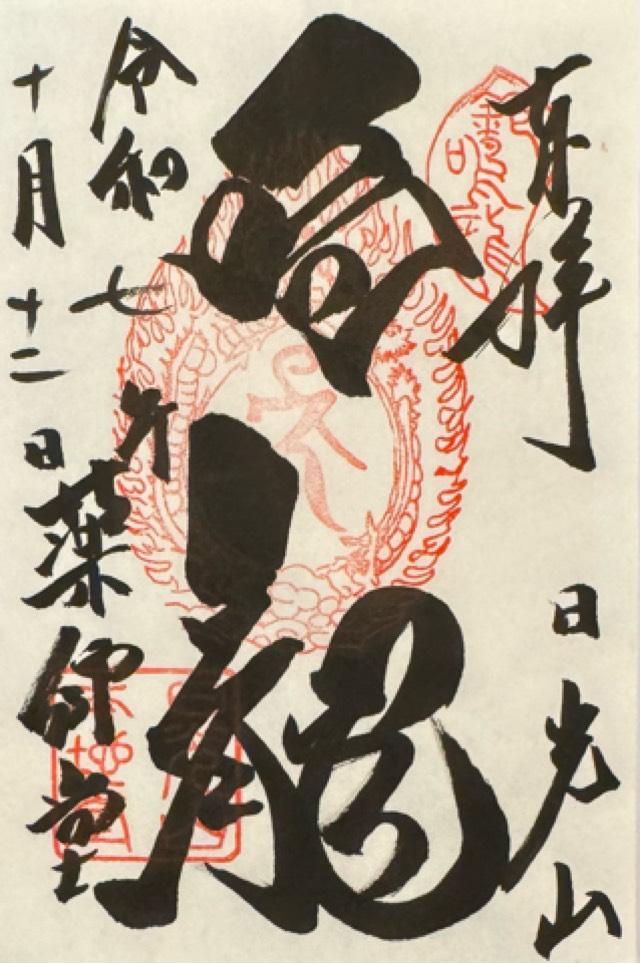 奉拝
日光山
鳴龍
令和七年
十月十二日
薬師堂